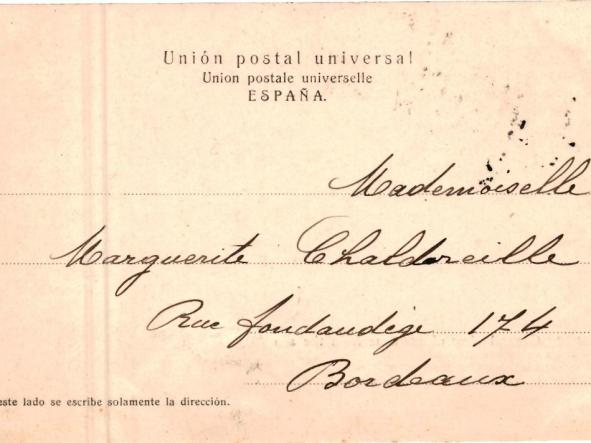 Unión postal universal
Union postale universelle
ESPAÑA.
Mademoiselle
Marguerite Chaldoreille
Rue fondaudège 174
Bordeaux
este lado se escribe solamente la dirección.